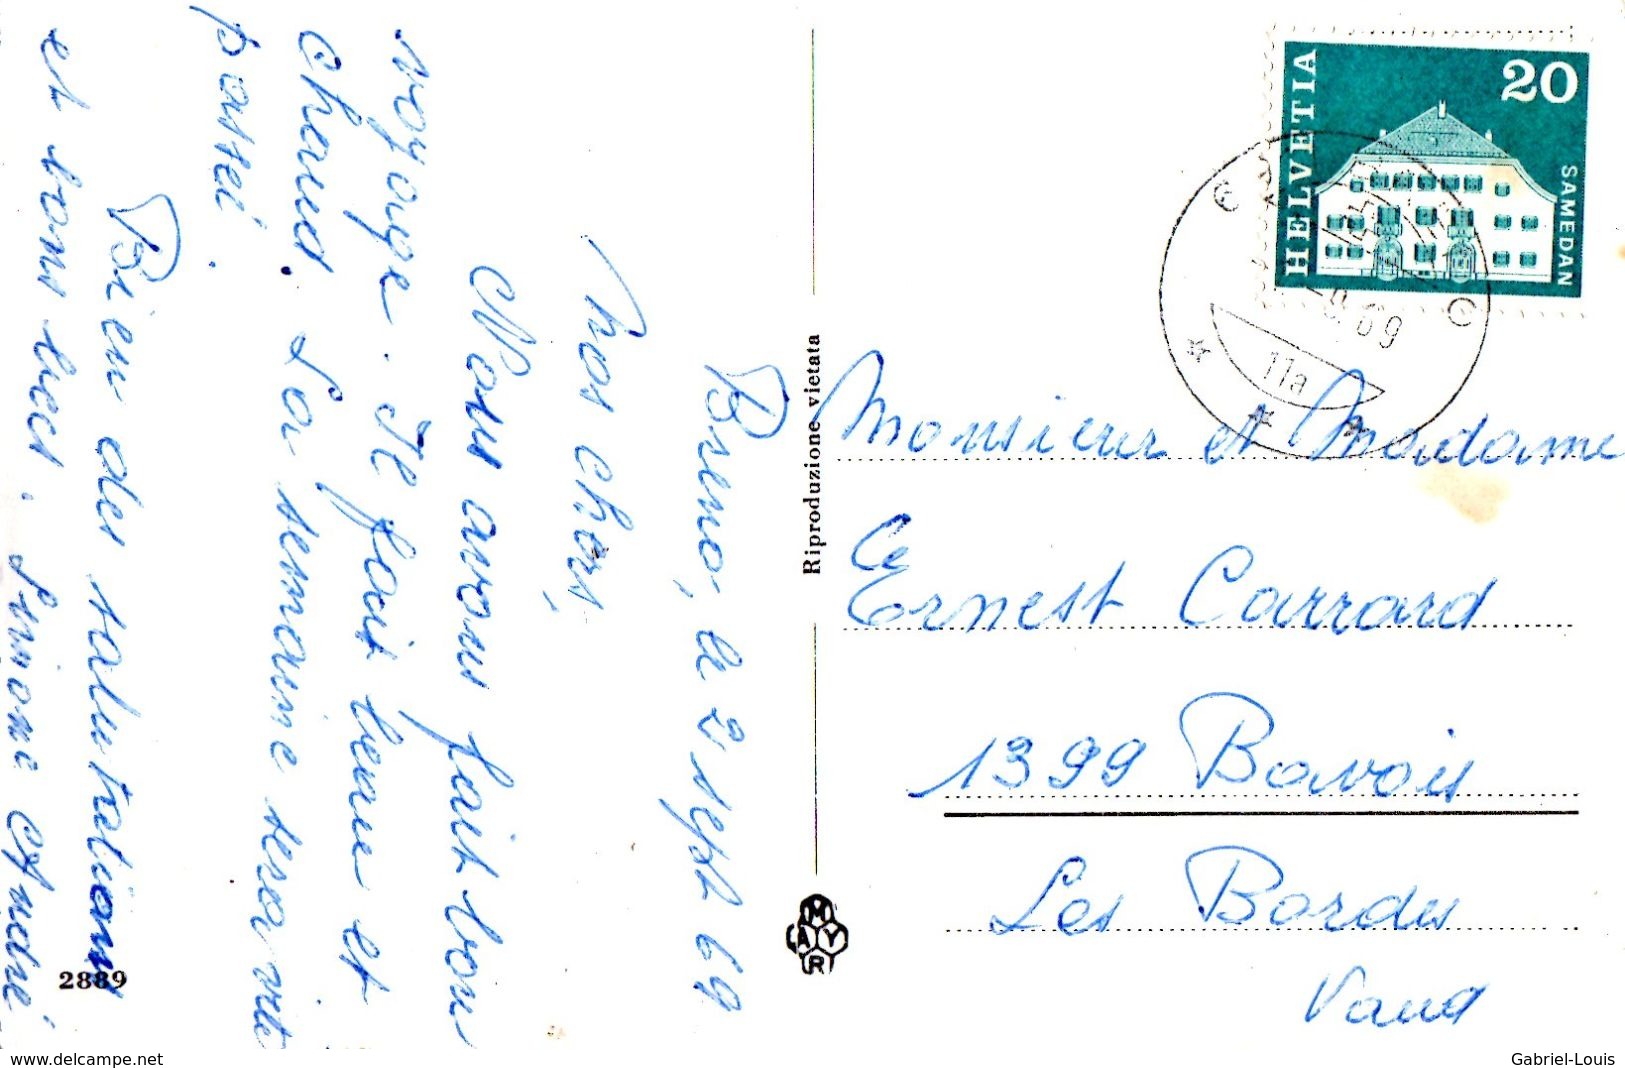 Breno, le 2 sept 69
Mes chers,
Nous avons fait bon
voyage. Il fait beau et
chaud. La semaine sera vite
passée.
Bien des salutations
et bons becs. Simone et André
2889
Riproduzione vietata
MAYR
HELVETIA
20
SAMEDAN
69
11a
Monsieur et Madame
Ernest Carrard
1399 Bavois
Les Bordes
Vaud
www.delcampe.net
Gabriel-Louis